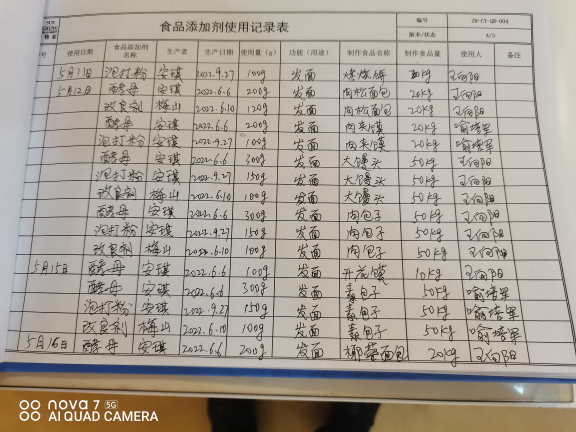 食品添加剂使用记录表
编号 ZK-CY-QR-004
版本/状态 A/3
号 使用日期 食品添加剂名称 生产者 生产日期 使用量(g) 功能(用途) 制作食品名称 制作食品量 使用人 备注
5月11日 泡打粉 安琪 2022.9.27 100g 发面 烧饼 kg 王向阳
5月12日 酵母 安琪 2022.6.6 200g 发面 肉松面包 20kg 王向阳
改良剂 梅山 2022.6.10 120g 发面 肉松面包 20kg 王向阳
酵母 安琪 2022.6.6 200g 发面 肉夹馍 20kg 喻培军
泡打粉 安琪 2022.9.27 100g 发面 肉夹馍 20kg 喻培军
酵母 安琪 2022.6.6 300g 发面 大馒头 50kg 王向阳
泡打粉 安琪 2022.9.27 150g 发面 大馒头 50kg 王向阳
改良剂 梅山 2022.6.10 100g 发面 大馒头 50kg 王向阳
酵母 安琪 2022.6.6 300g 发面 肉包子 50kg 王向阳
泡打粉 安琪 2022.9.27 150g 发面 肉包子 50kg 王向阳
改良剂 梅山 2022.6.10 100g 发面 肉包子 50kg 王向阳
5月15日 酵母 安琪 2022.6.6 100g 发面 开花馍 10kg 王向阳
酵母 安琪 2022.6.6 300g 发面 素包子 50kg 喻培军
泡打粉 安琪 2022.9.27 150g 发面 素包子 50kg 喻培军
改良剂 梅山 2022.6.10 100g 发面 素包子 50kg 喻培军
5月16日 酵母 安琪 2022.6.6 200g 发面 椰蓉面包 20kg 王向阳
nova 7 5G
AI QUAD CAMERA